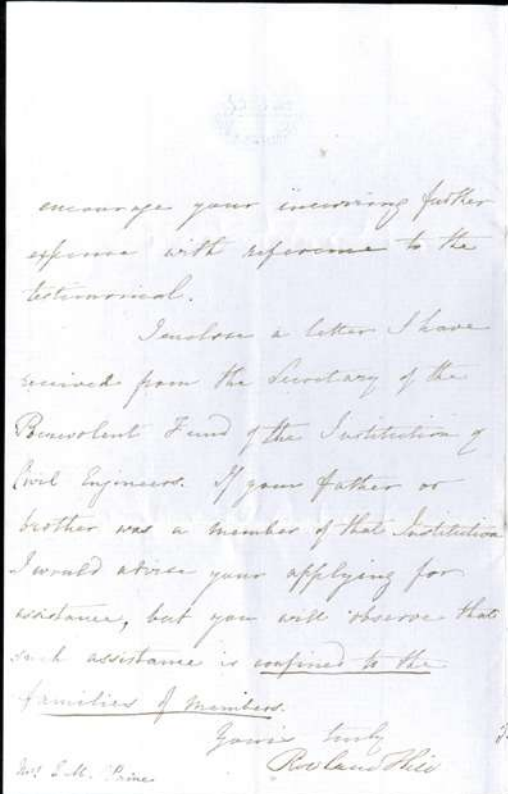 encourage your incurring further
expense with reference to the
testimonial.
I enclose a letter I have
received from the Secretary of the
Benevolent Fund of the Institution of
Civil Engineers. If your father or
brother was a member of that Institution
I would advise your applying for
assistance, but you will observe that
such assistance is confined to the
families of members.
Yours truly
Rowland Hill
Paine